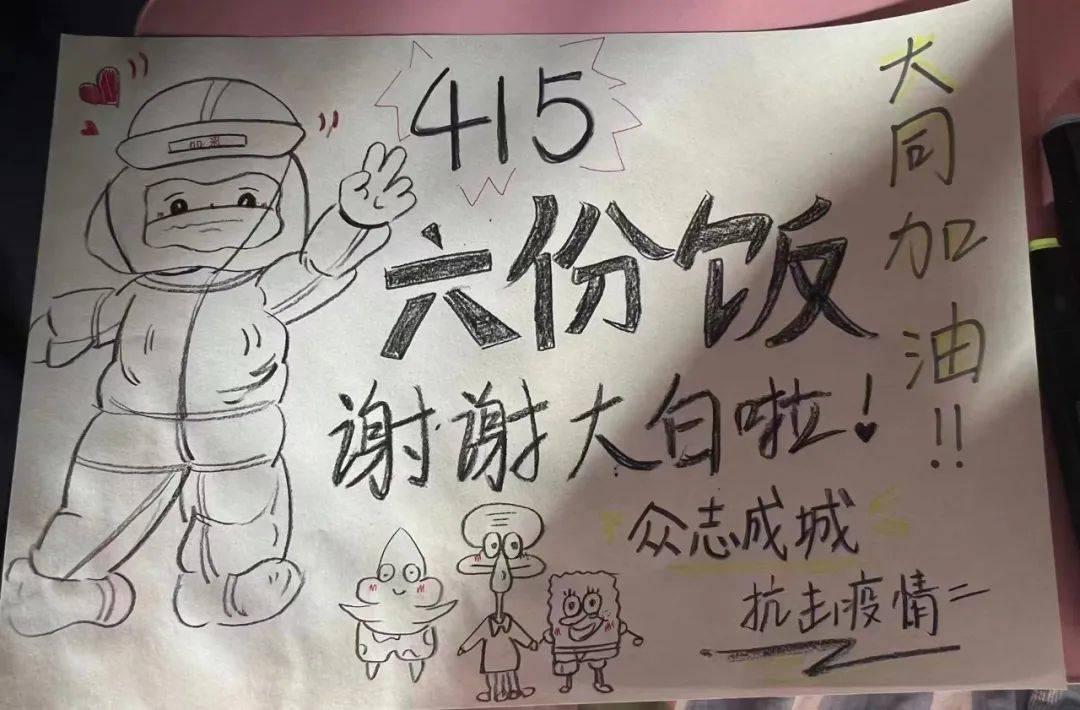 415
六份饭
谢谢大白啦！
众志成城
抗击疫情
大同加油!!